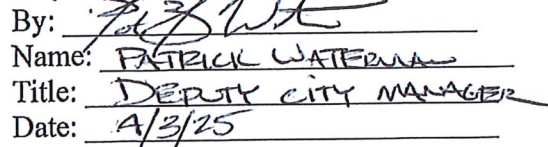 By:
Name: PATRICK WATERMAN
Title: DEPUTY CITY MANAGER
Date: 4/3/25